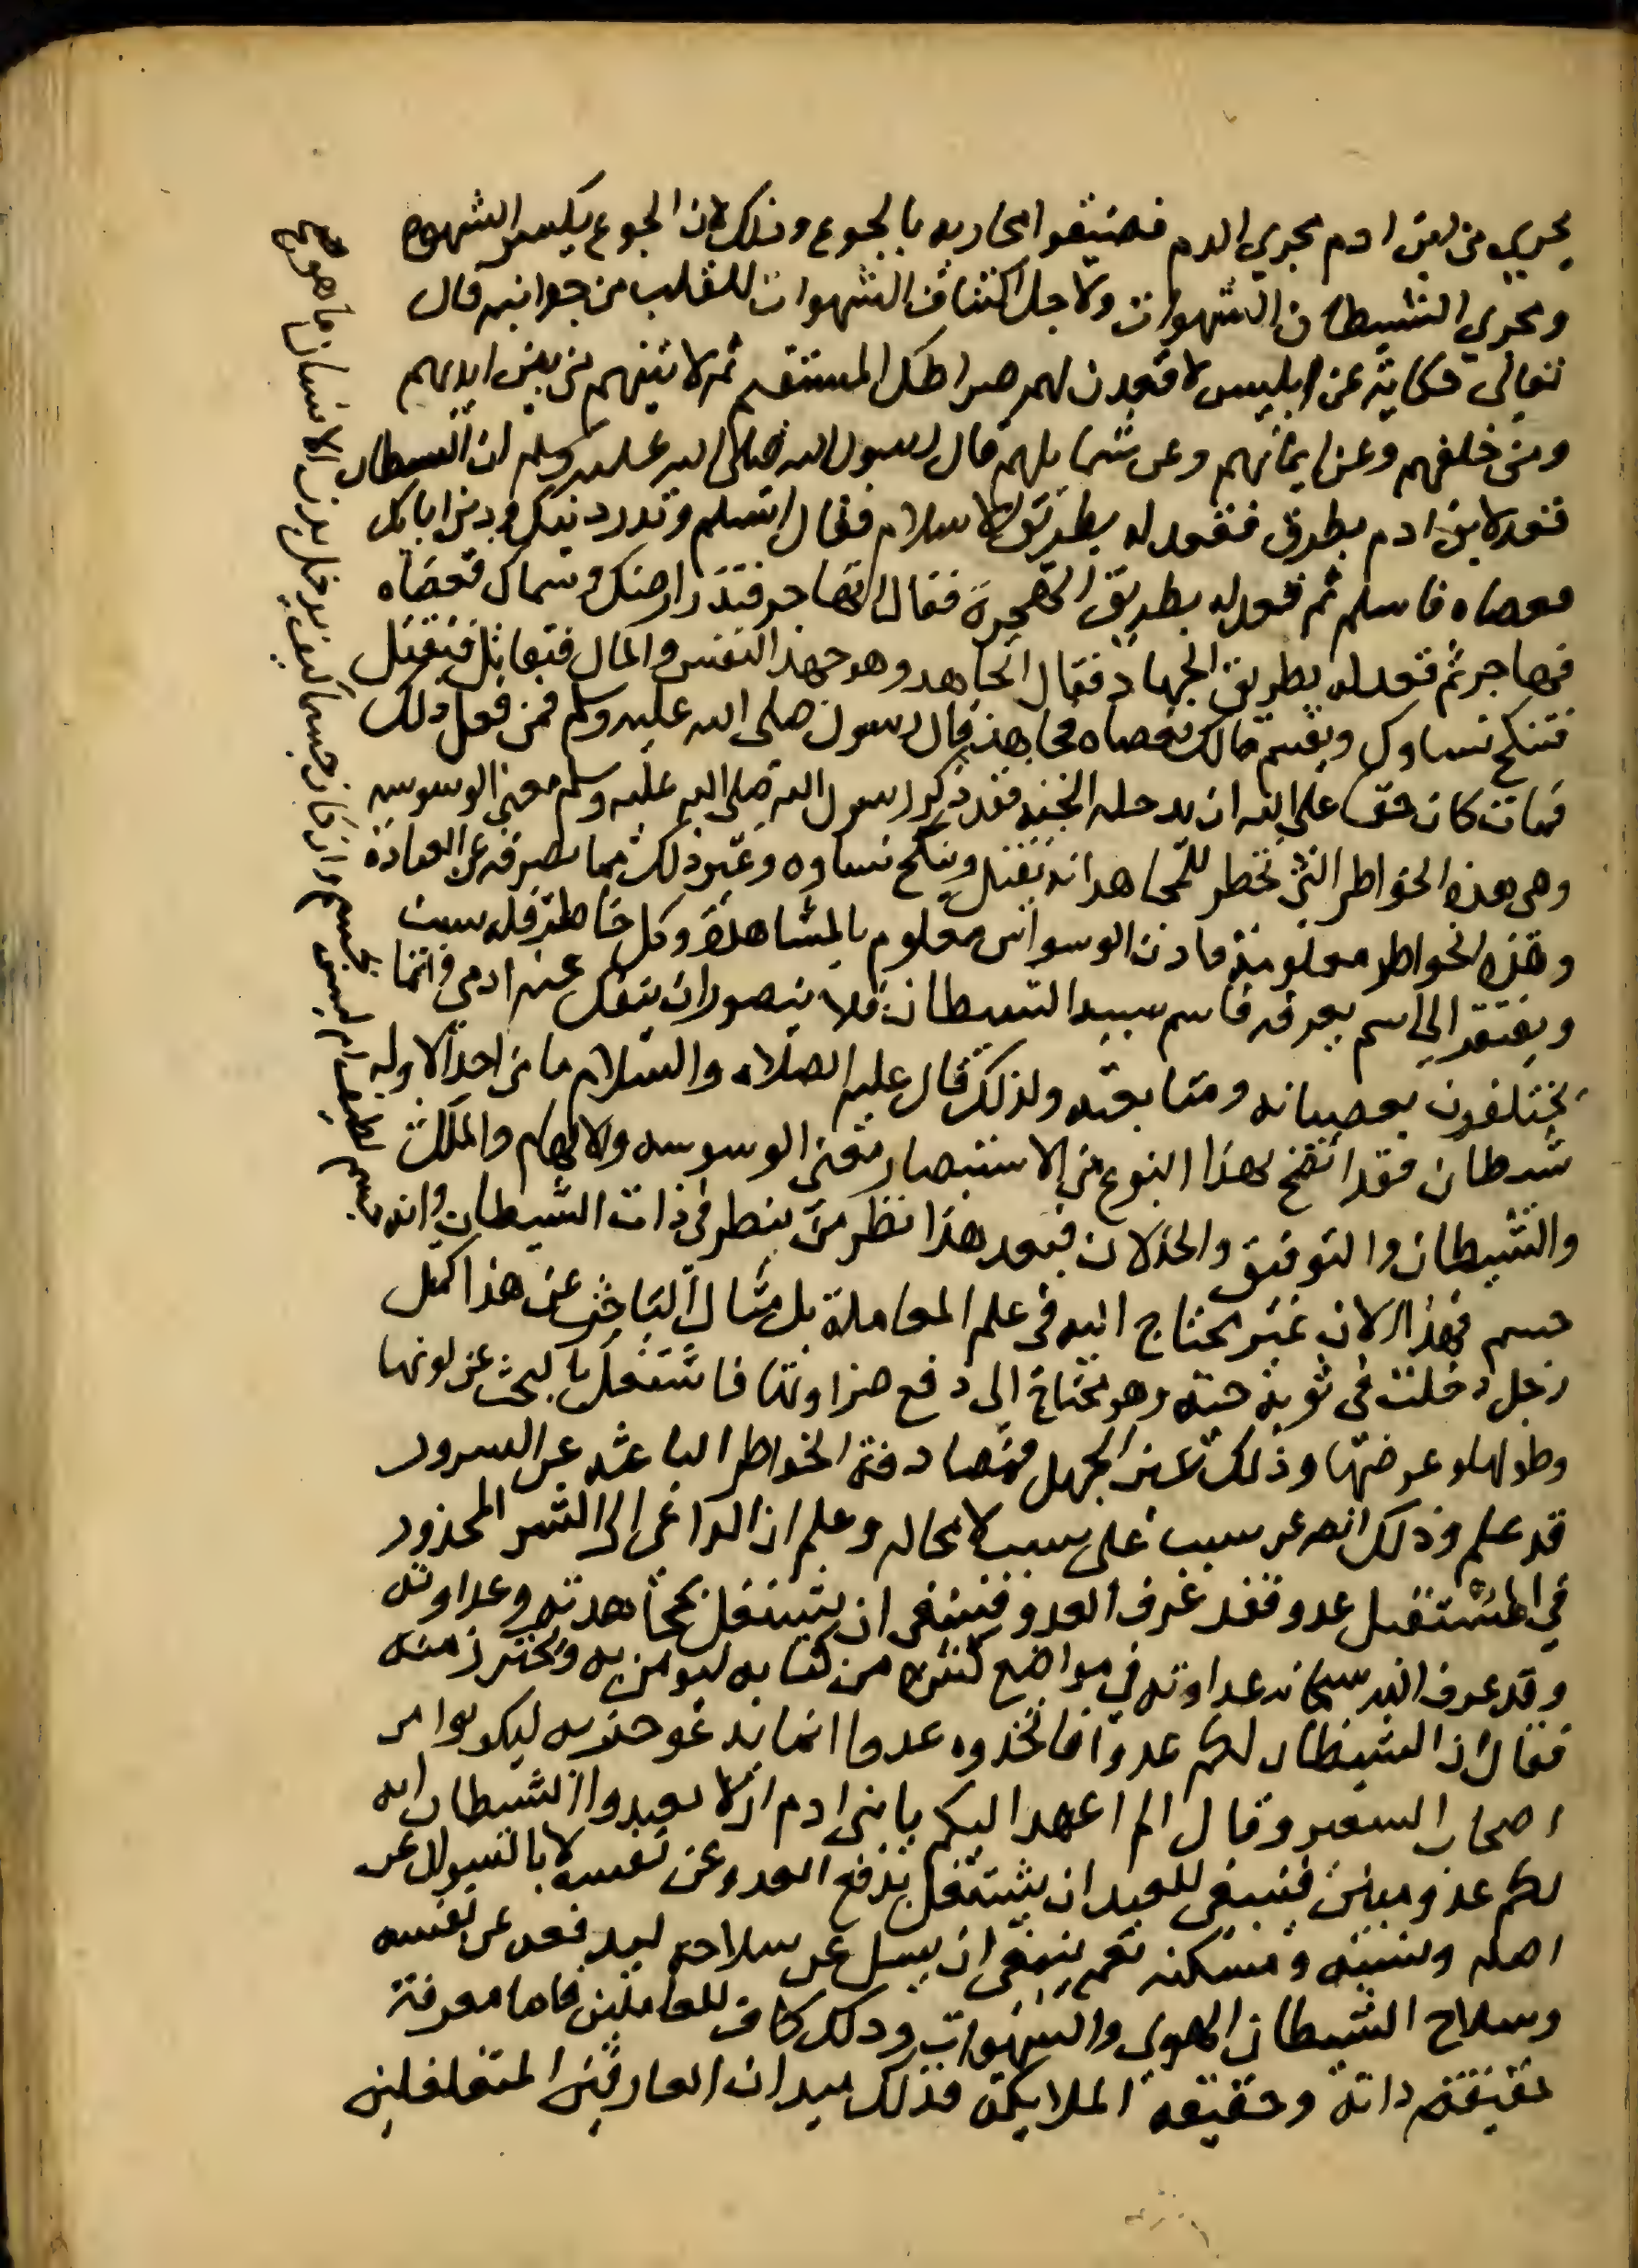 يجري من ابن ادم مجري الدم فضيقوا مجاريه بالجوع وذلك لان الجوع يكسر الشهوه
ومجري الشيطان الشهوات ولاجل اكتناف الشهوات للقلب من جوانبه قال
تعالى حكاية عن ابليس لاقعدن لهم صراطك المستقيم ثم لاتينهم من بين ايديهم
ومن خلفهم وعن ايمانهم وعن شمايلهم قال رسول الله صلى الله عليه وسلم ان الشيطان
قعد لابن ادم بطرق فقعد له بطريق الاسلام فقال اتسلم وتدر دينك ودين ابايك
فعصاه فاسلم ثم قعد له بطريق الهجرة فقال اتهاجر فتذر ارضك وسماك فعصاه
فهاجر ثم قعد له بطريق الجهاد فقال اتجاهد وهو جهد النفس والمال فتقاتل فتقتل
فتنكح نساوك ويقسم مالك فعصاه فجاهد قال رسول صلى الله عليه وسلم فمن فعل ذلك
فمات كان حقا على الله ان يدخله الجنه فقد ذكر رسول الله صلى الله عليه وسلم معنى الوسوسه
وهي هذه الخواطر التي تخطر للمجاهد انه يقتل وينكح نساوه وغير ذلك مما يصرفه عن العبادة
وهذه الخواطر معلومة فاذن الوسواس معلوم بالمشاهدة وكل خاطر فله سبب
ويفتقر الى اسم يعرفه فاسم سببه الشيطان فلا يتصور ان ينفك عنه ادمي وانما
يختلفون بعصيانه ومتابعته ولذلك قال عليه الصلاه والسلام ما من احد الا وله
شيطان فقد اتضح بهذا النوع من الاستبصار معنى الوسوسه والالهام والملك
والشيطان والتوفيق والخذلان فبعد هذا نظر من ينظر في ذات الشيطان وانه
جسم لطيف ام ليس بجسم وان كان جسما كيف يدخل بدن الانسان ما هو جسم
جسم فهذا الان غير محتاج اليه في علم المعاملة بل مثال الباحث عن هذا كمثل
رجل دخلت في ثوبه حية وهو محتاج الى دفع ضراوتها فاشتغل بالبحث عن لونها
وطولها وعرضها وذلك عين الجهل فمصادفة الخواطر الباعثه عن السرور
قد علم وذلك انه عن سبب على سبب لا محاله وعلم ان الداعي الى الشر المحذور
في المستقبل عدو فقد عرف العدو فينبغي ان يشتغل بمجاهدته وعداوته
وقد عرف الله سبحانه عداوته في مواضع كثيره من كتابه ليومن به ويحترز منه
فقال ان الشيطان لكم عدو فاتخذوه عدوا انما يدعو حزبه ليكونوا من
اصحاب السعير وقال الم اعهد اليكم يا بني ادم ان لا تعبدوا الشيطان انه
لكم عدو مبين فينبغي للعبد ان يشتغل بدفع العدو عن نفسه لا بالسوال عن
اصله ونسبه ومسكنه نعم ينبغي ان يسل عن سلاحه ليدفعه عن نفسه
وسلاح الشيطان الهوى والشهوات وذلك كاف للعاملين فاما معرفة
حقيقة ذاته وحقيقة الملايكة فذلك ميدان العارفين المتغلغلين